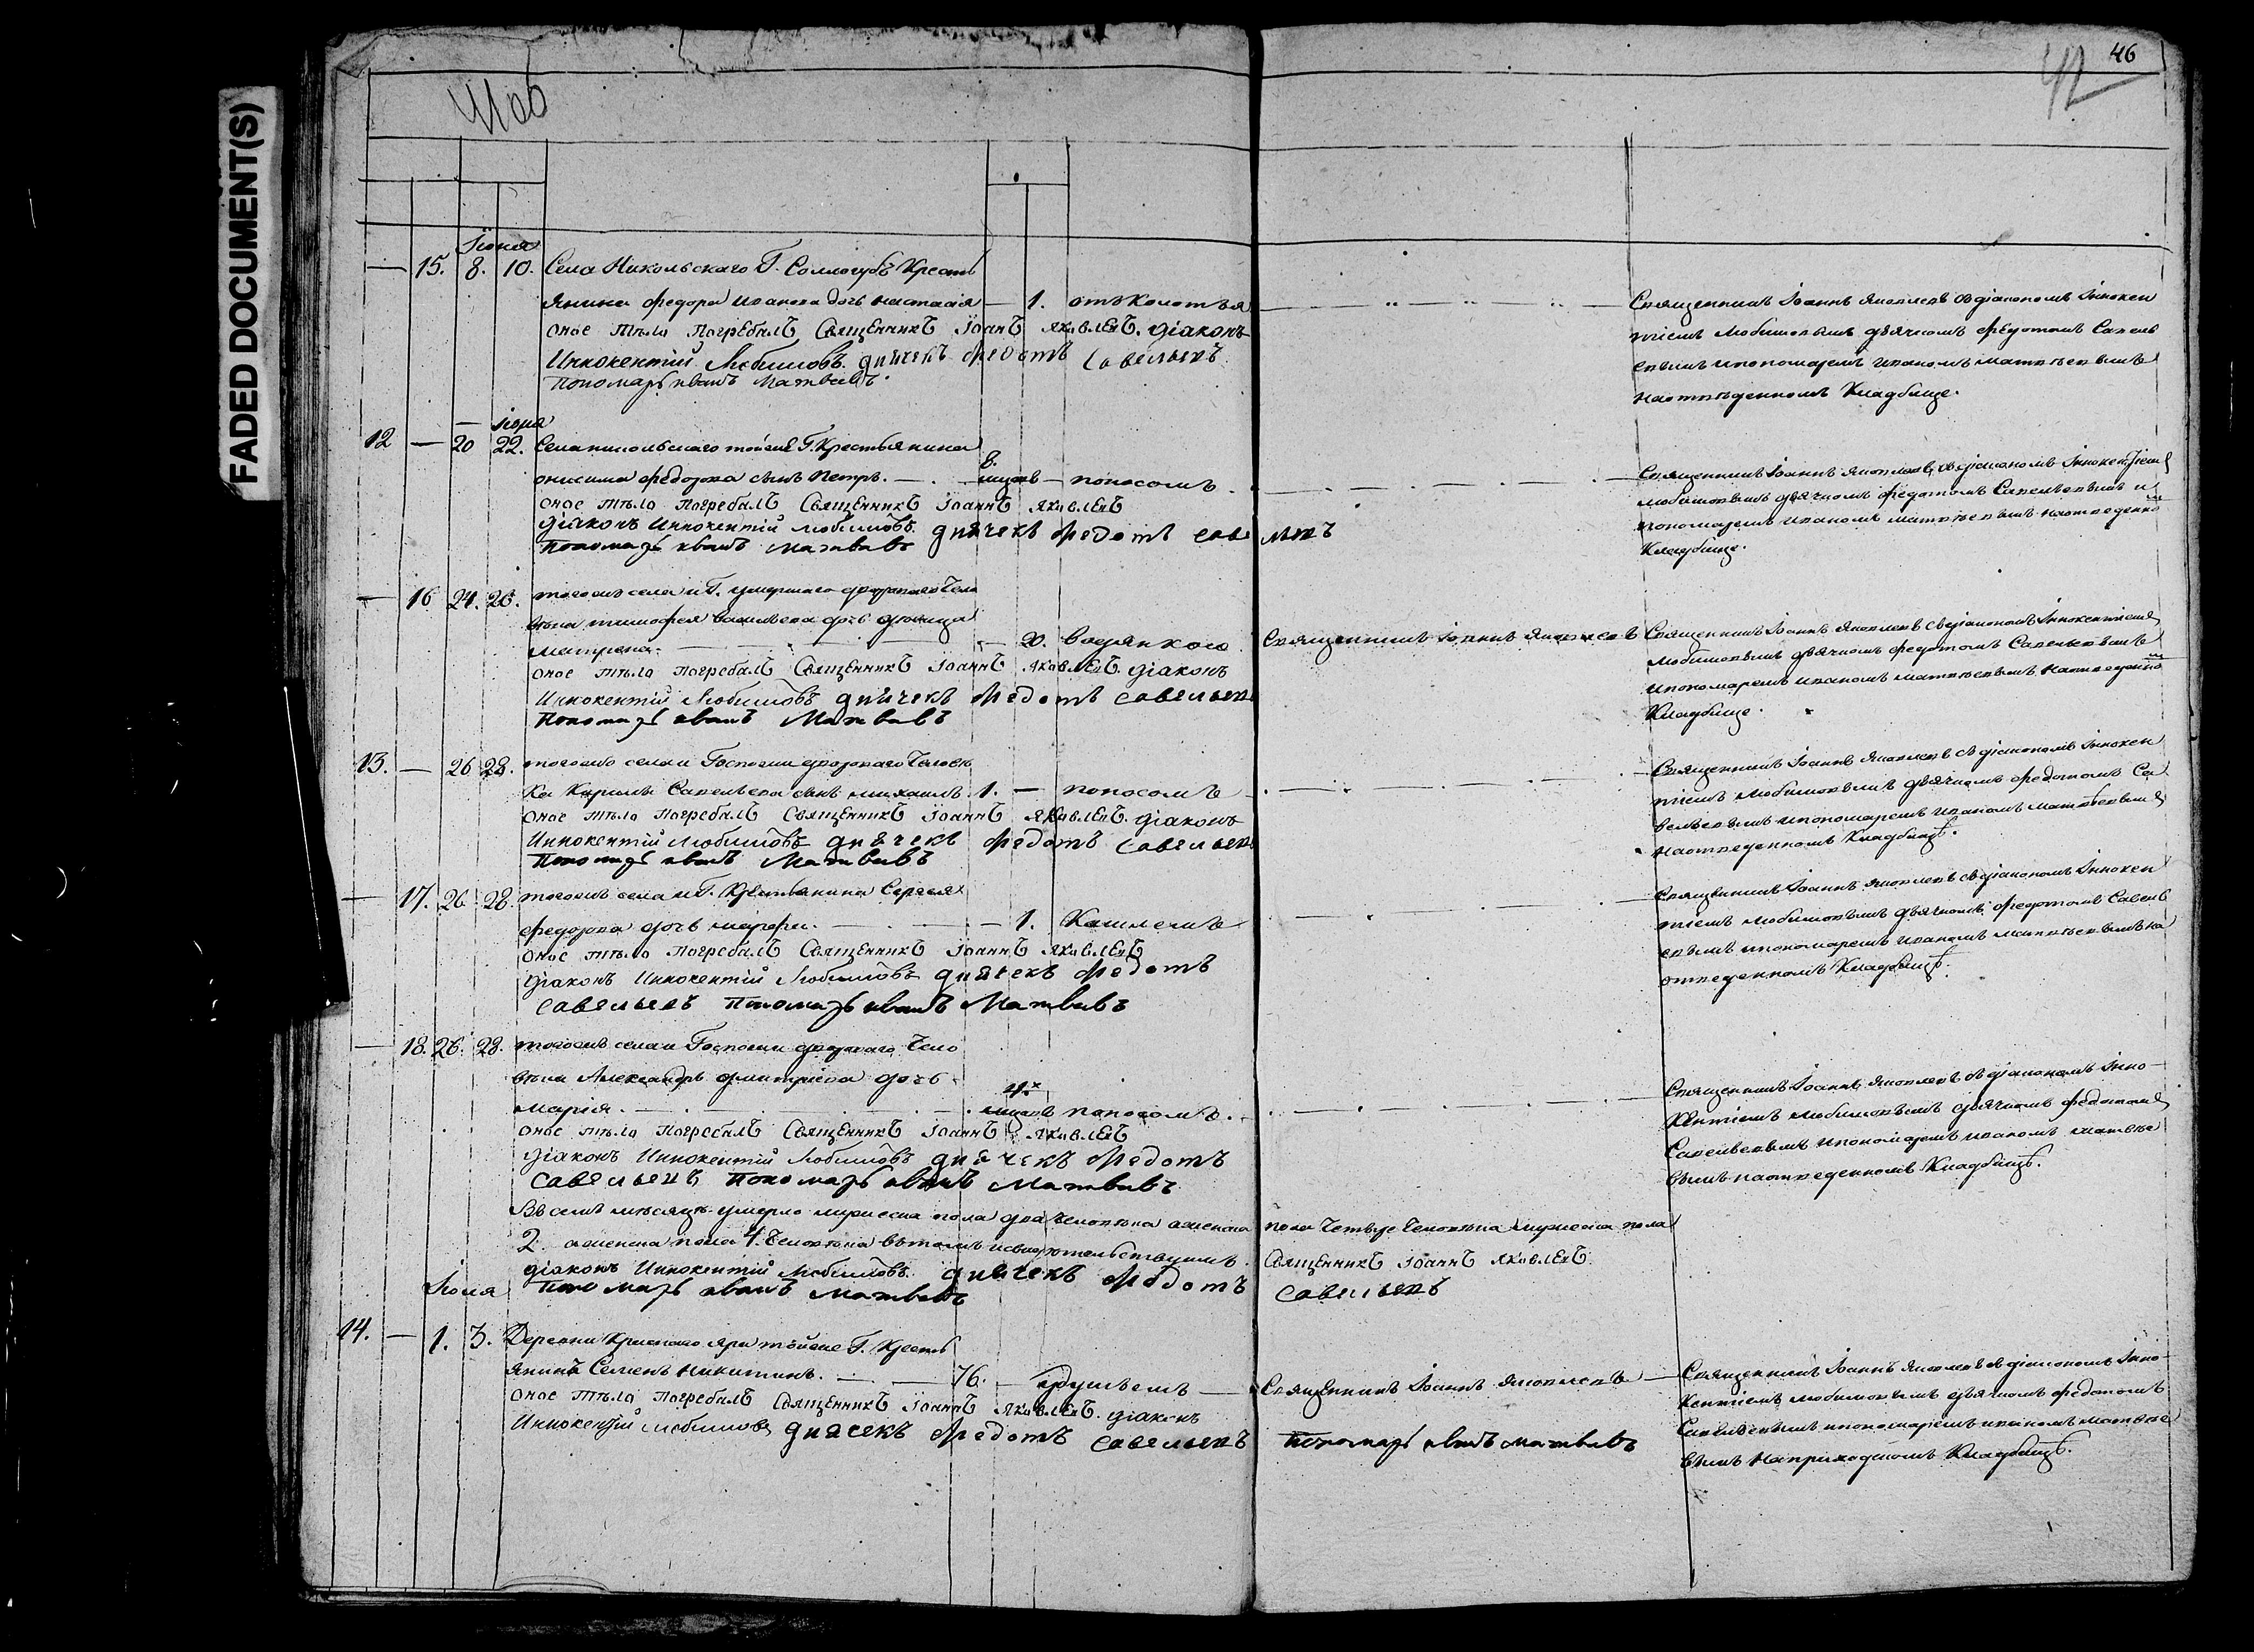 FADED DOCUMENT(S)
46
42
41об
Іюня
15. 8. 10. Села Никольскаго Г. Сологубъ Кресть
янина Федора Иванова дочь Настасія — 1. отъ колотья
Священникъ Іоаннъ Яковлевъ съ діакономъ Іннокен
тіемъ Любимовымъ дьячкомъ Федотомъ Савель
евымъ и пономаремъ Иваномъ Матвѣевымъ
на отведенномъ Кладбище.
оное тѣло погребалъ Священникъ Іоаннъ Яковлевъ. діаконъ
Иннокентій Любимовъ. дьячекъ Федотъ Савельевъ
Пономарь Иванъ Матвѣевъ.
іюня
12 — 20 22. Села Никольскаго той же Г. Крестьянина
онисима Федорова сынъ Петръ. — 8. месяцев — поносомъ
Священникъ Іоаннъ Яковлевъ съ діакономъ Іннокентіем
Любимовымъ дьячкомъ Федотомъ Савельевымъ и
пономаремъ Иваномъ Матвѣевымъ на отведенно
Кладбище.
оное тѣло погребалъ Священникъ Іоаннъ Яковлевъ
діаконъ Иннокентій Любимовъ. дьячекъ Федотъ Савельевъ
Пономарь Иванъ Матвѣевъ
— 16 24. 26. тогожъ села и Г. умершаго двороваго Чело
вѣка Тимофея Васильева дочь девица
Матрена. — 20. водянкою Священникъ Іоаннъ Яковлевъ
Священникъ Іоаннъ Яковлевъ съ діакономъ Іннокентіемъ
Любимовымъ дьячкомъ Федотомъ Савельевымъ
и пономаремъ Иваномъ Матвѣевымъ на отведенно
Кладбище.
оное тѣло погребалъ Священникъ Іоаннъ Яковлевъ діаконъ
Иннокентій Любимовъ дьячекъ Федотъ Савельевъ
Пономарь Иванъ Матвѣевъ
13. — 26 28. тогожъ села и Госпожи двороваго Человѣ
ка Карилы Савельева сынъ Михаилъ. 1. — поносомъ
Священникъ Іоаннъ Яковлевъ съ діакономъ Іннокен
тіемъ Любимовымъ дьячкомъ Федотомъ Са
вельевымъ и пономаремъ Иваномъ Матвѣевымъ
на отведенномъ Кладбищѣ.
оное тѣло погребалъ Священникъ Іоаннъ Яковлевъ. діаконъ
Иннокентій Любимовъ дьячекъ Федотъ Савельевъ
Пономарь Иванъ Матвѣевъ
— 17. 26 28. тогожъ села и Г. Крестьянина Сергея
Федорова дочь Марфа. — 1. Кашлемъ
Священникъ Іоаннъ Яковлевъ съ діакономъ Іннокен
тіемъ Любимовымъ дьячкомъ Федотомъ Савель
евымъ и пономаремъ Иваномъ Матвѣевымъ на
отведенномъ Кладбищѣ.
оное тѣло погребалъ Священникъ Іоаннъ Яковлевъ
діаконъ Иннокентій Любимовъ дьячекъ Федотъ
Савельевъ Пономарь Иванъ Матвѣевъ
— 18. 26. 28. тогожъ села и Госпожи двороваго Чело
вѣка Александръ Дмитріева дочь
Марія. — месяцев поносомъ.
Священникъ Іоаннъ Яковлевъ съ діакономъ Інно-
кентіемъ Любимовымъ дьячкомъ Федотомъ
Савельевымъ и пономаремъ Иваномъ Матвѣе
вымъ на отведенномъ Кладбищѣ.
оное тѣло погребалъ Священникъ Іоаннъ Яковлевъ
діаконъ Иннокентій Любимовъ дьячекъ Федотъ
Савельевъ Пономарь Иванъ Матвѣевъ
Въ семъ мѣсяцѣ умерло мужеска пола два человѣка а женска пола Четыре Человѣка Мужеска пола
2. а женска пола 4. Человѣка въ томъ и свидѣтельствуемъ. Священникъ Іоаннъ Яковлевъ.
діаконъ Иннокентій Любимовъ. дьячекъ Федотъ Савельевъ
Пономарь Иванъ Матвѣевъ
Іюля
14. — 1. 3. Деревни Краснаго Яра той же Г. Кресть
янинъ Семенъ Никитинъ. — 76. — удушьемъ — Священникъ Іоаннъ Яковлевъ
Священникъ Іоаннъ Яковлевъ съ діакономъ Інно-
кентіемъ Любимовымъ дьячкомъ Федотомъ
Савельевымъ и пономаремъ Иваномъ Матвѣе
вымъ на приходскомъ Кладбищѣ.
оное тѣло погребалъ Священникъ Іоаннъ Яковлевъ. діаконъ
Иннокентій Любимовъ дьячекъ Федотъ Савельевъ Пономарь Иванъ Матвѣевъ